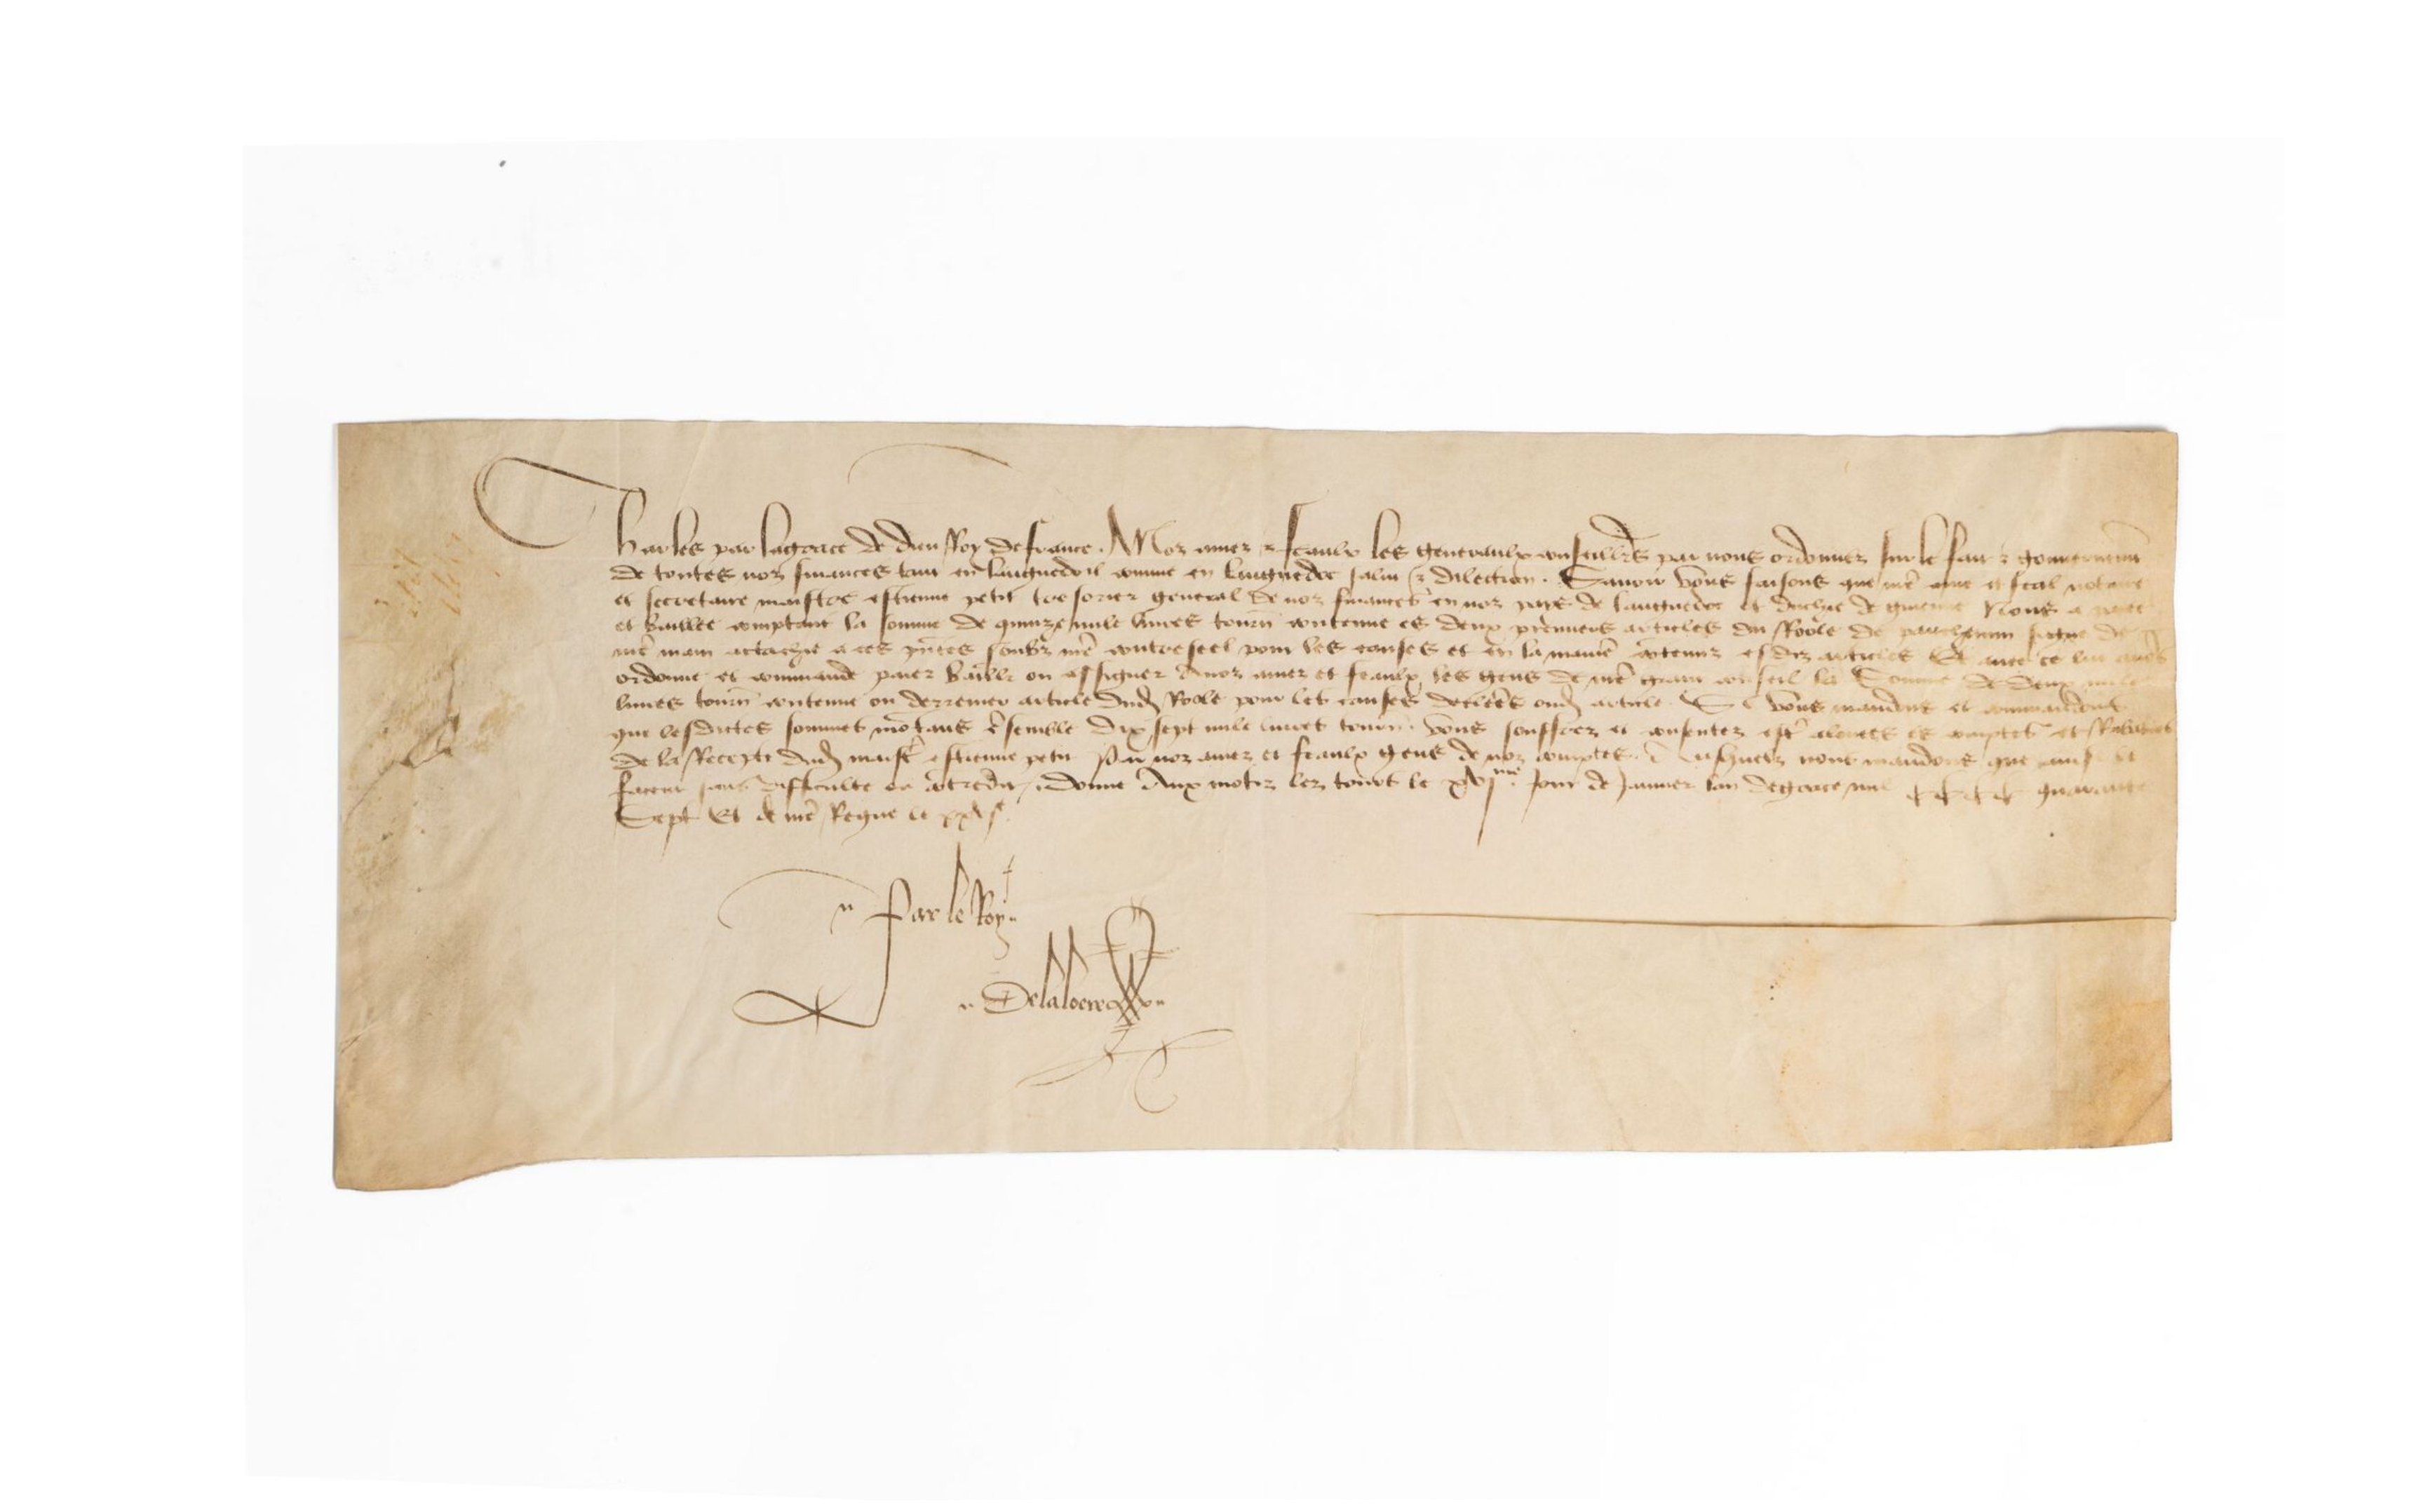 Charles par la grace de dieu Roy de france. A Noz amez & feaulx les generaulx conseillrs par nous ordonnez sur le fait & gouvernemt
de toutes noz finances tant en languedoil comme en languedoc salut & dilection. Savoir vous faisons que nre ame et feal notaire
et secretaire maistre estienne petit tresorier general de noz finances en noz pays de languedoc et duchie de guienne Nous a
et baillee comptant la somme de quinze mile livres tourn contenue es deux premiers articles du Roole de parchemin signe de
nre main atachie a ces pntes soubz nre contreseel pour les causes et en la maniere contenuz esdiz articles Et avec ce lui avons
ordonne et commande paier bailler ou assigner A noz amez et feaulx les gens de nre grant conseil la Somme de deux mile
livres tourn contenue ou derrenier article dud Roole pour les causes declerees oud article. Si vous mandons et commandons
que lesdictes sommes montans ensemble Dix sept mile livres tourn. vous souffrez et consentez estre alouees es comptes et Rabatues
de la Recepte dud maistre estienne petit Par noz amez et feaulx gens de noz comptes. Ausquelz nous mandons que ainsi le
facent sans difficulte ou contredit. Donne Aux motiz lez tours le xvjme Jour de Janvier lan de grace mil CCCC quarante
Sept Et de nre Regne le xxvje
Par le Roy
Delaloere